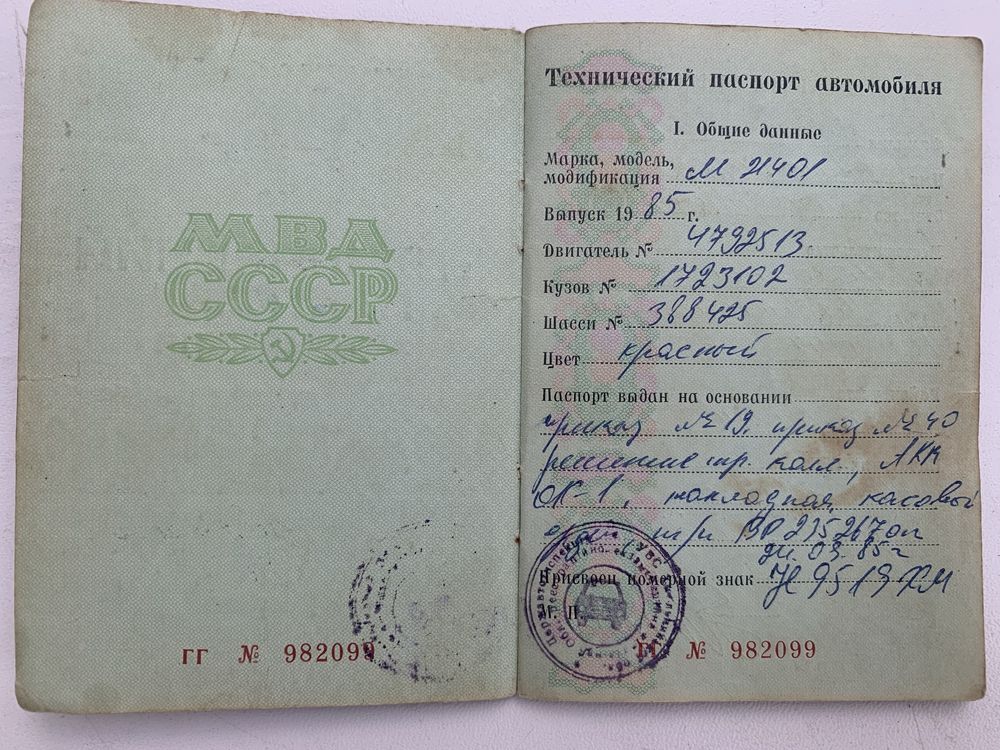 МВД
СССР
ГГ № 982099
Технический паспорт автомобиля
I. Общие данные
Марка, модель,
модификация М 21401
Выпуск 19 85 г.
Двигатель № 4792513
Кузов № 1723102
Шасси № 388425
Цвет красный
Паспорт выдан на основании
приказ № 19, приказ № 40
решение тр. колл., АКК
ОК-1, накладная, касовый
ВР 275267 от
03. 85 г
Присвоен номерной знак 9519 ХМ
М. П.
ГГ № 982099